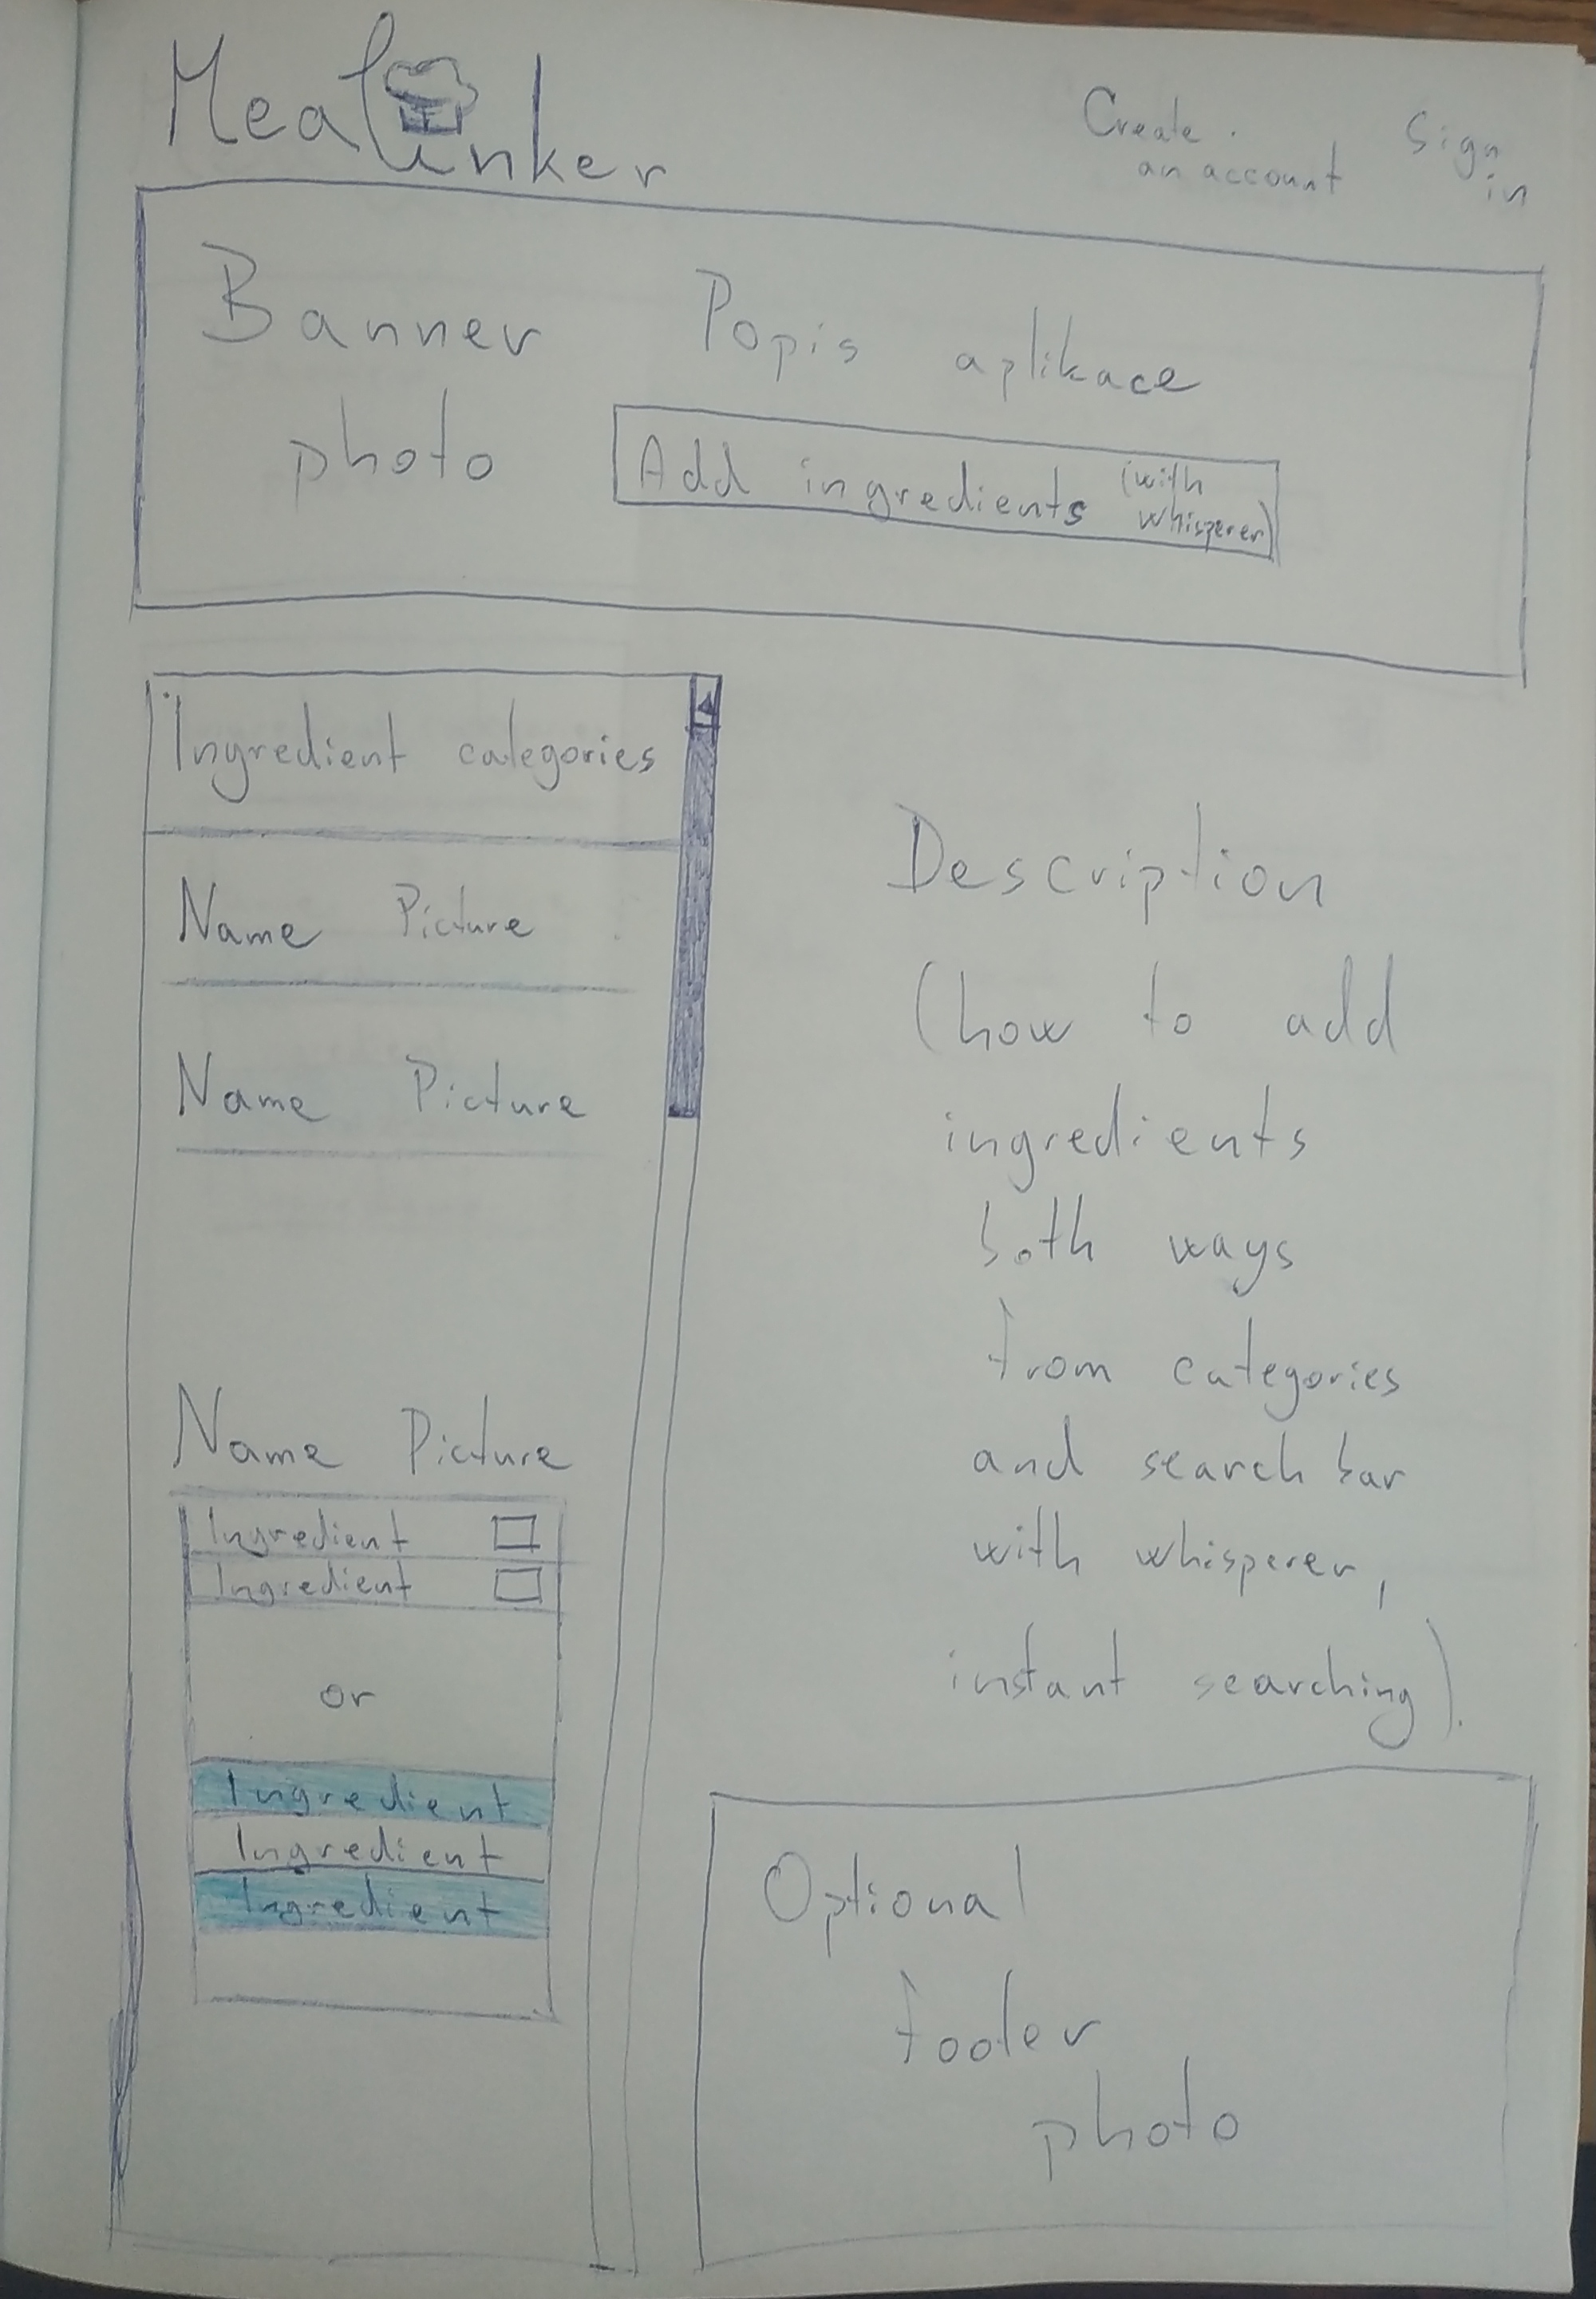 Mealinker
Create
an account
Sign
in
Banner
photo
Popis aplikace
Add ingredients (with
whisperer)
Ingredient categories
Name Picture
Name Picture
Name Picture
Ingredient
Ingredient
or
Ingredient
Ingredient
Ingredient
Description
(how to add
ingredients
both ways
from categories
and search bar
with whisperer,
instant searching).
Optional
footer
photo